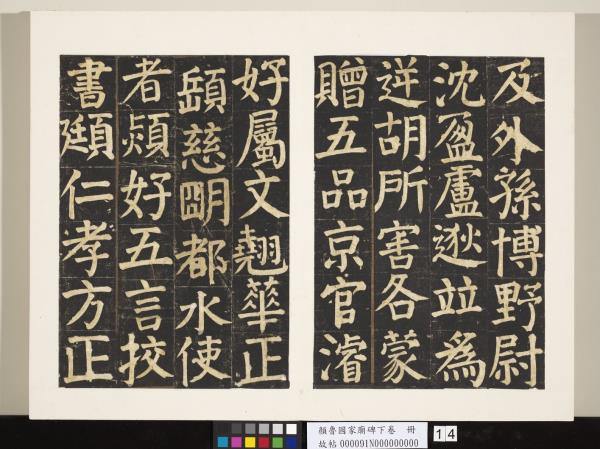 及外孫博野尉
沈盈盧逖並為
逆胡所害各蒙
贈五品京官濬
好屬文翹華正
慈明都水使
者熲好五言挍
書頲仁孝方正
顏魯國家廟碑下卷 冊
故帖 000091N000000000
14